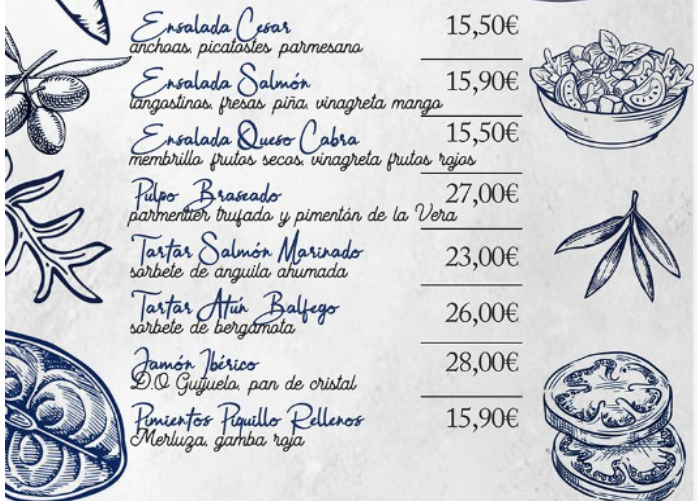 Ensalada Cesar 15,50€
anchoas, picatostes parmesano
Ensalada Salmón 15,90€
langostinos, fresas piña, vinagreta mango
Ensalada Queso Cabra 15,50€
membrillo frutos secos, vinagreta frutos rojos
Pulpo Braseado 27,00€
parmentier trufado y pimentón de la Vera
Tartar Salmón Marinado 23,00€
sorbete de anguila ahumada
Tartar Atún Balfego 26,00€
sorbete de bergamota
Jamón Ibérico 28,00€
D.O Guijuelo, pan de cristal
Pimientos Piquillo Rellenos 15,90€
Merluza, gamba roja